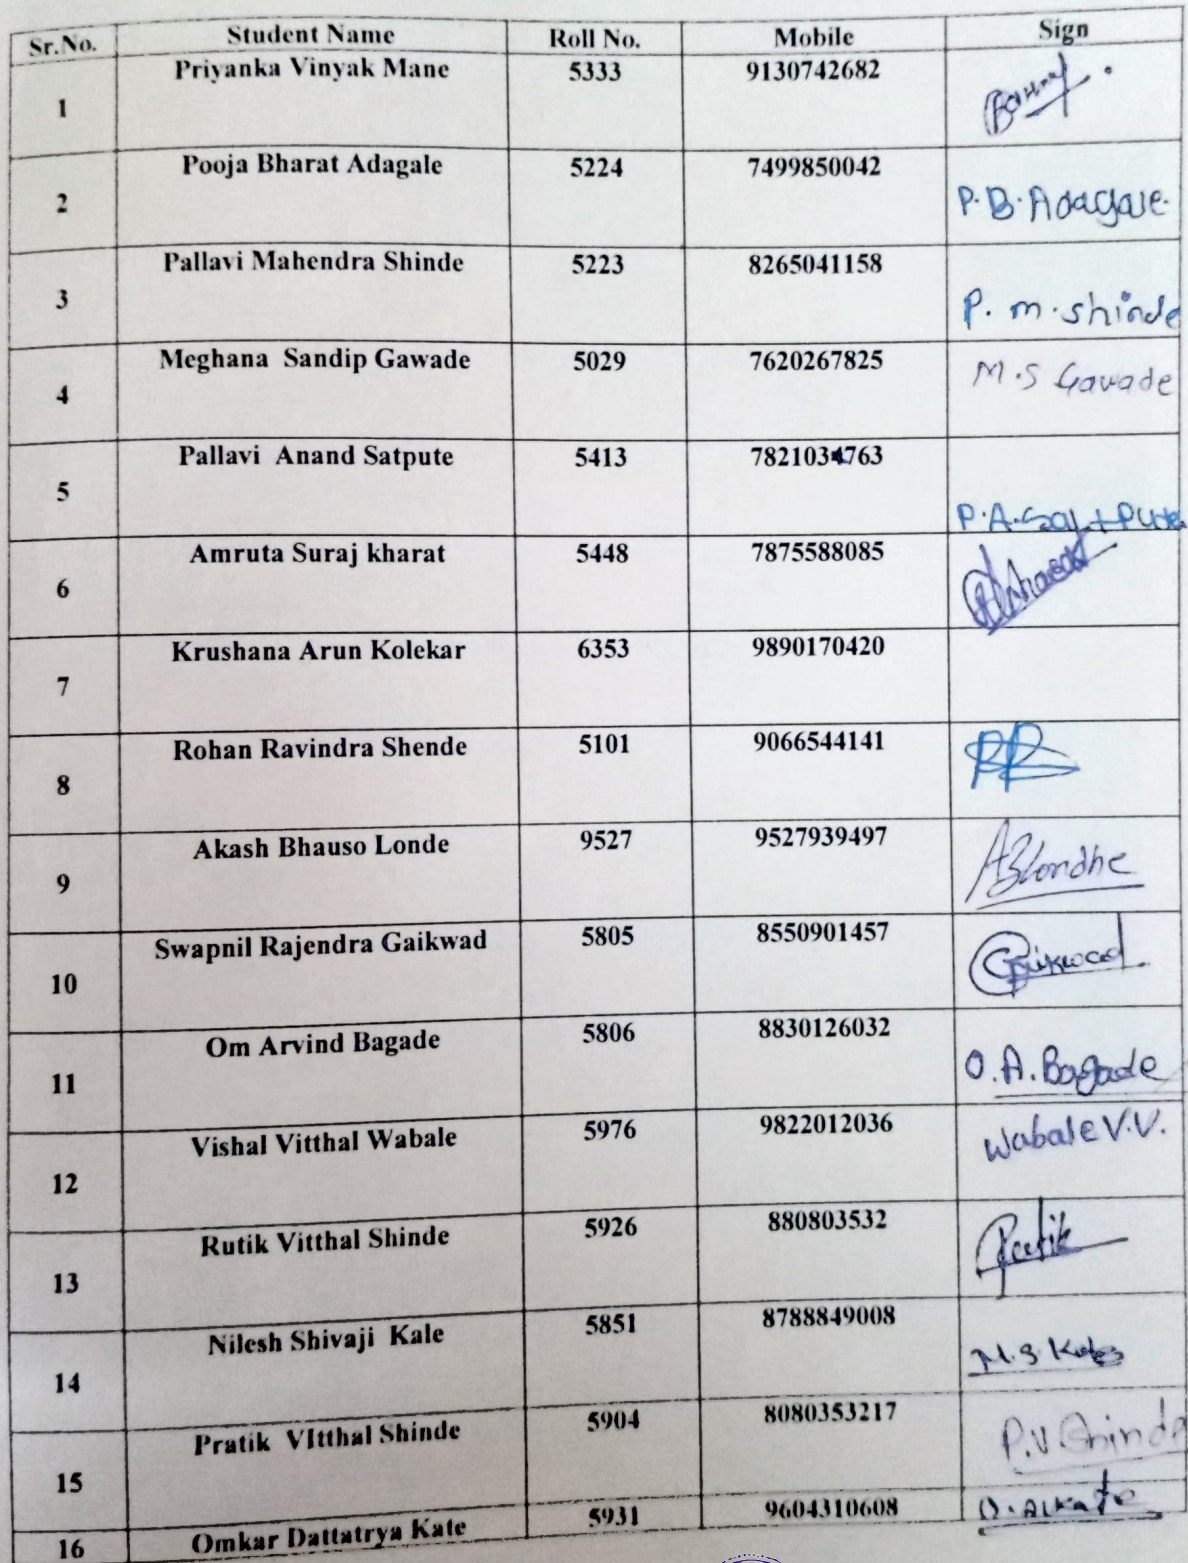 Sr.No. Student Name Roll No. Mobile Sign
1 Priyanka Vinyak Mane 5333 9130742682
2 Pooja Bharat Adagale 5224 7499850042 P.B.Adagale.
3 Pallavi Mahendra Shinde 5223 8265041158 P. m. shinde
4 Meghana Sandip Gawade 5029 7620267825 M.S Gavade
5 Pallavi Anand Satpute 5413 7821034763 P.A.Satpute
6 Amruta Suraj kharat 5448 7875588085
7 Krushana Arun Kolekar 6353 9890170420
8 Rohan Ravindra Shende 5101 9066544141
9 Akash Bhauso Londe 9527 9527939497 ABlondhe
10 Swapnil Rajendra Gaikwad 5805 8550901457 Gaikwad
11 Om Arvind Bagade 5806 8830126032 O.A.Bagade
12 Vishal Vitthal Wabale 5976 9822012036 Wabale V.V.
13 Rutik Vitthal Shinde 5926 880803532
14 Nilesh Shivaji Kale 5851 8788849008
15 Pratik VItthal Shinde 5904 8080353217 P.V.Shinde
16 Omkar Dattatrya Kate 5931 9604310608